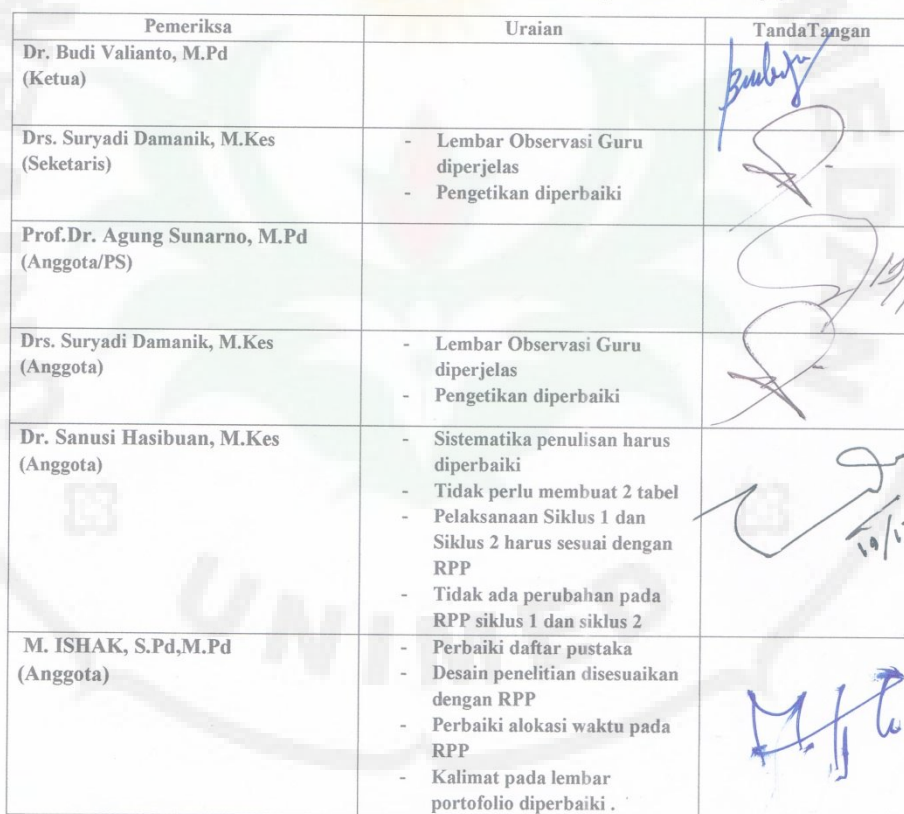 Pemeriksa Uraian TandaTangan
Dr. Budi Valianto, M.Pd
(Ketua)
Drs. Suryadi Damanik, M.Kes
(Seketaris)
- Lembar Observasi Guru
diperjelas
- Pengetikan diperbaiki
Prof.Dr. Agung Sunarno, M.Pd
(Anggota/PS)
Drs. Suryadi Damanik, M.Kes
(Anggota)
- Lembar Observasi Guru
diperjelas
- Pengetikan diperbaiki
Dr. Sanusi Hasibuan, M.Kes
(Anggota)
- Sistematika penulisan harus
diperbaiki
- Tidak perlu membuat 2 tabel
- Pelaksanaan Siklus 1 dan
Siklus 2 harus sesuai dengan
RPP
- Tidak ada perubahan pada
RPP siklus 1 dan siklus 2
M. ISHAK, S.Pd,M.Pd
(Anggota)
- Perbaiki daftar pustaka
- Desain penelitian disesuaikan
dengan RPP
- Perbaiki alokasi waktu pada
RPP
- Kalimat pada lembar
portofolio diperbaiki .
UNIMED